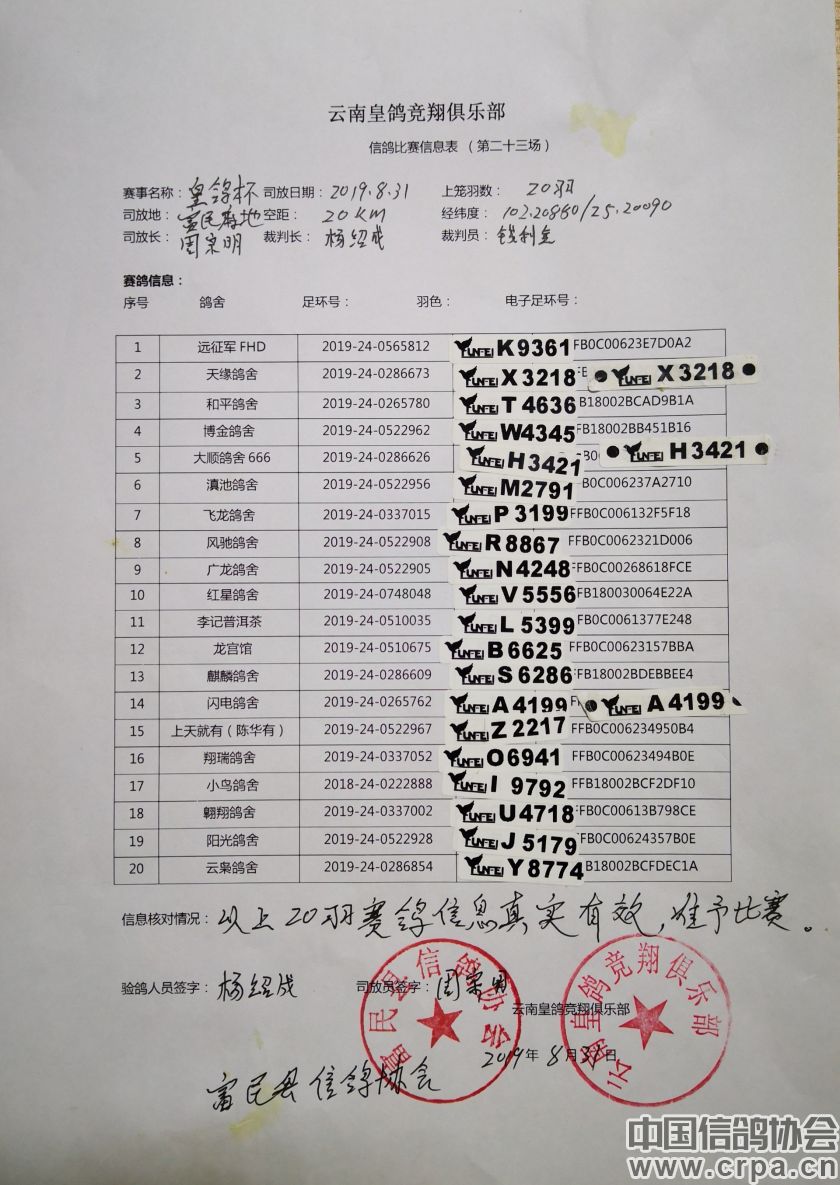 云南皇鸽竞翔俱乐部
信鸽比赛信息表 （第二十三场）
赛事名称： 皇鸽杯 司放日期： 2019.8.31 上笼羽数： 20羽
司放地： 富民基地 空距： 20KM 经纬度： 102.20860/25.20090
司放长： 周宗明 裁判长： 杨绍成 裁判员： 钱利宝
赛鸽信息：
序号 鸽舍 足环号： 羽色： 电子足环号：
1 远征军FHD 2019-24-0565812 YUNFEI K9361 FFB0C00623E7D0A2
2 天缘鸽舍 2019-24-0286673 YUNFEI X3218 FE YUNFEI X3218
3 和平鸽舍 2019-24-0265780 YUNFEI T4636 FB18002BCAD9B1A
4 博金鸽舍 2019-24-0522962 YUNFEI W4345 FB18002BB451B16
5 大顺鸽舍666 2019-24-0286626 YUNFEI H3421 FB0 YUNFEI H3421
6 滇池鸽舍 2019-24-0522956 YUNFEI M2791 FB0C006237A2710
7 飞龙鸽舍 2019-24-0337015 YUNFEI P3199 FFB0C006132F5F18
8 风驰鸽舍 2019-24-0522908 YUNFEI R8867 FFB0C0062321D006
9 广龙鸽舍 2019-24-0522905 YUNFEI N4248 FFB0C00268618FCE
10 红星鸽舍 2019-24-0748048 YUNFEI V5556 FFB180030064E22A
11 李记普洱茶 2019-24-0510035 YUNFEI L5399 FFB0C0061377E248
12 龙宫馆 2019-24-0510675 YUNFEI B6625 FFB0C00623157BBA
13 麒麟鸽舍 2019-24-0286609 YUNFEI S6286 FFB18002BDEBBEE4
14 闪电鸽舍 2019-24-0265762 YUNFEI A4199 YUNFEI A4199
15 上天就有（陈华有） 2019-24-0522967 YUNFEI Z2217 FFB0C006234950B4
16 翔瑞鸽舍 2019-24-0337052 YUNFEI O6941 FFB0C00623494B0E
17 小鸟鸽舍 2018-24-0222888 YUNFEI I9792 FFB18002BCF2DF10
18 翱翔鸽舍 2019-24-0337002 YUNFEI U4718 FFB0C00613B798CE
19 阳光鸽舍 2019-24-0522928 YUNFEI J5179 FFB0C00624357B0E
20 云枭鸽舍 2019-24-0286854 YUNFEI Y8774 FB18002BCFDEC1A
信息核对情况： 以上20羽赛鸽信息真实有效，准予比赛。
验鸽人员签字： 杨绍成 司放员签字： 周宗明
云南皇鸽竞翔俱乐部
2019年8月31日
富民县信鸽协会
富民县信鸽协会
云南皇鸽竞翔俱乐部
中国信鸽协会
www.crpa.cn